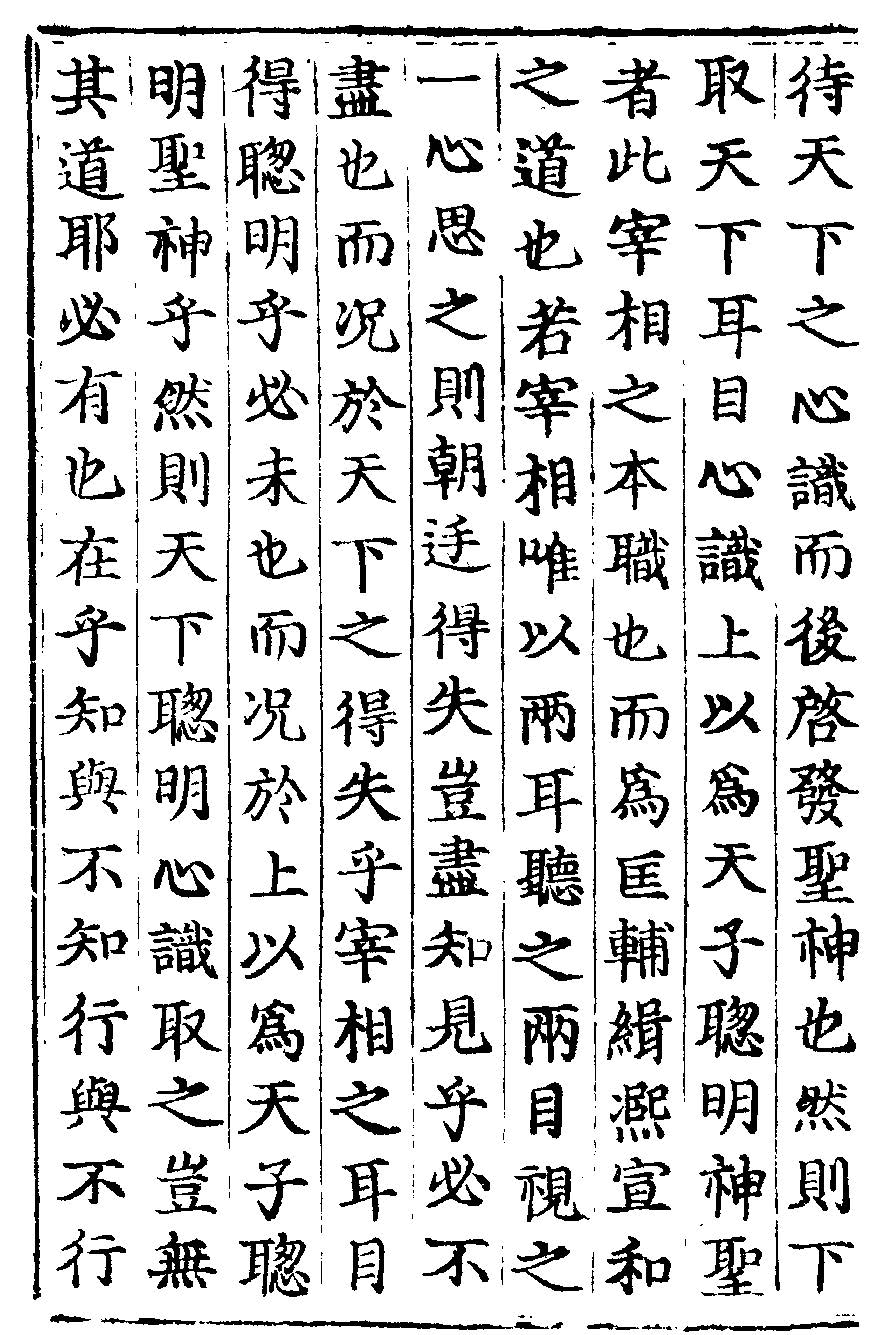 待天下之心識而後啓發聖神也然則下
取天下耳目心識上以爲天子聦明神聖
者此宰相之本職也而爲匡輔緝熈宣和
之道也若宰相唯以兩耳聽之兩目視之
一心思之則朝廷得失豈盡知見乎必不
盡也而况於天下之得失乎宰相之耳目
得聦明乎必未也而况於上以爲天子聦
明聖神乎然則天下聦明心識取之豈無
其道耶必有也在乎知與不知行與不行